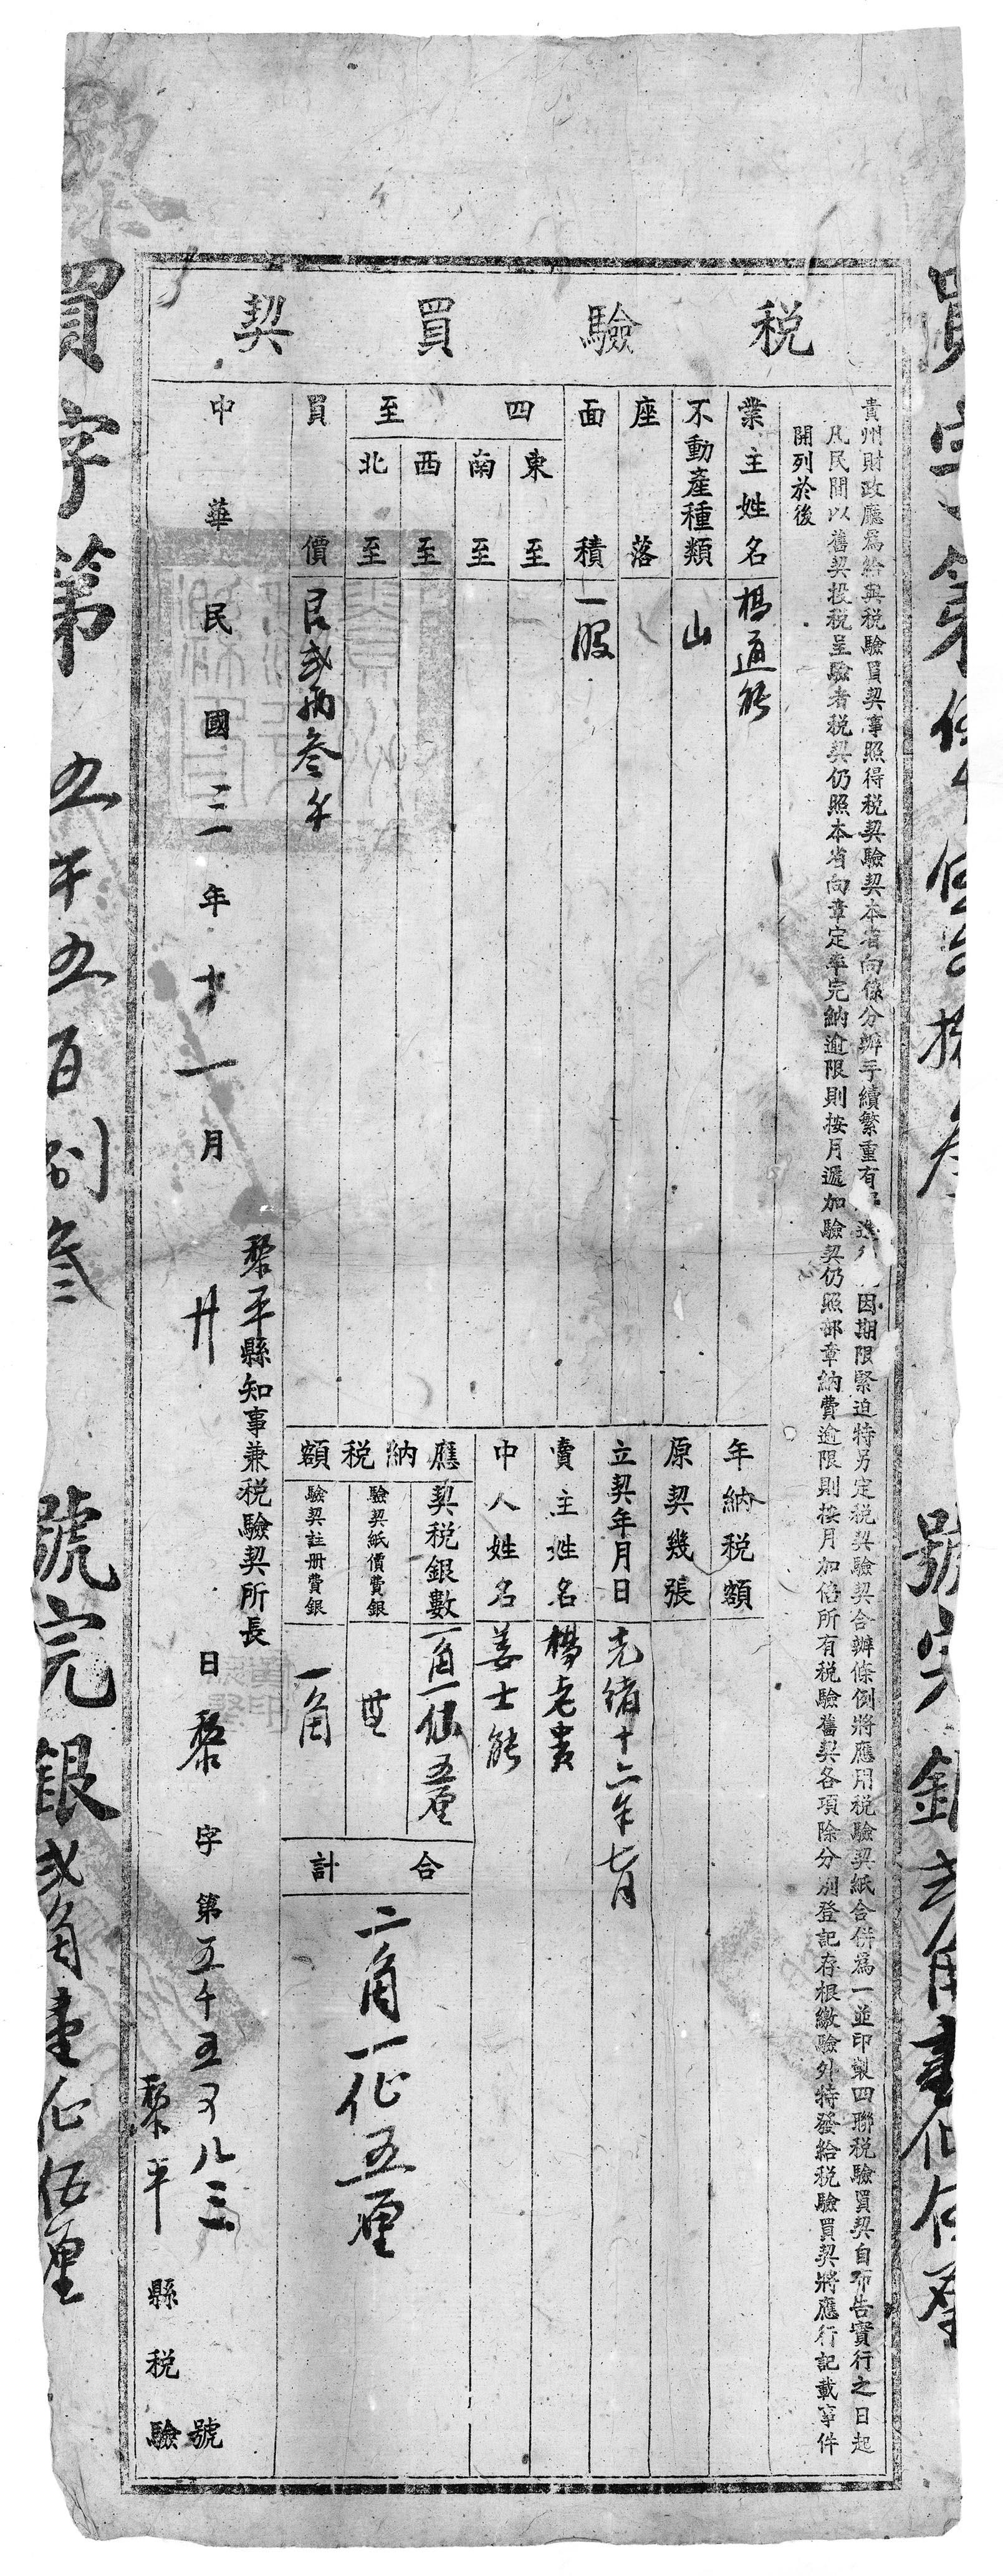 稅驗買契
貴州財政廳爲給與稅驗買契事照得稅契驗契本省向係分辦手續繁重有因期限緊迫特另定稅契驗契合辦條例將應用稅驗契紙合併爲一並印製四聯稅驗買契自布告實行之日起
凡民間以舊契投稅呈驗者稅契仍照本省向章定率完納逾限則按月遞加驗契仍照部章納費逾限則按月加倍所有稅驗舊契各項除分別登記存根繳驗外特發給稅驗買契將應行記載事件
開列於後
業主姓名 楊通能
不動產種類 山
座落
面積 一股
四至
東至
南至
西至
北至
買價 艮貳兩叁千
年納稅額
原契幾張
立契年月日 光緒十二年七月
賣主姓名 楊老貴
中人姓名 姜士能
應納稅額
契稅銀數 一角一仙五厘
驗契紙價費銀
驗契註册費銀 一角
合計
二角一仙五厘
黎平縣知事兼稅驗契所長
中華民國三年十一月廿日黎字第五千五百八三號
黎平縣稅驗
買字第五千五百捌叁號完銀貳角壹仙伍厘
買字第伍千伍百捌叁號完銀貳角壹仙伍厘